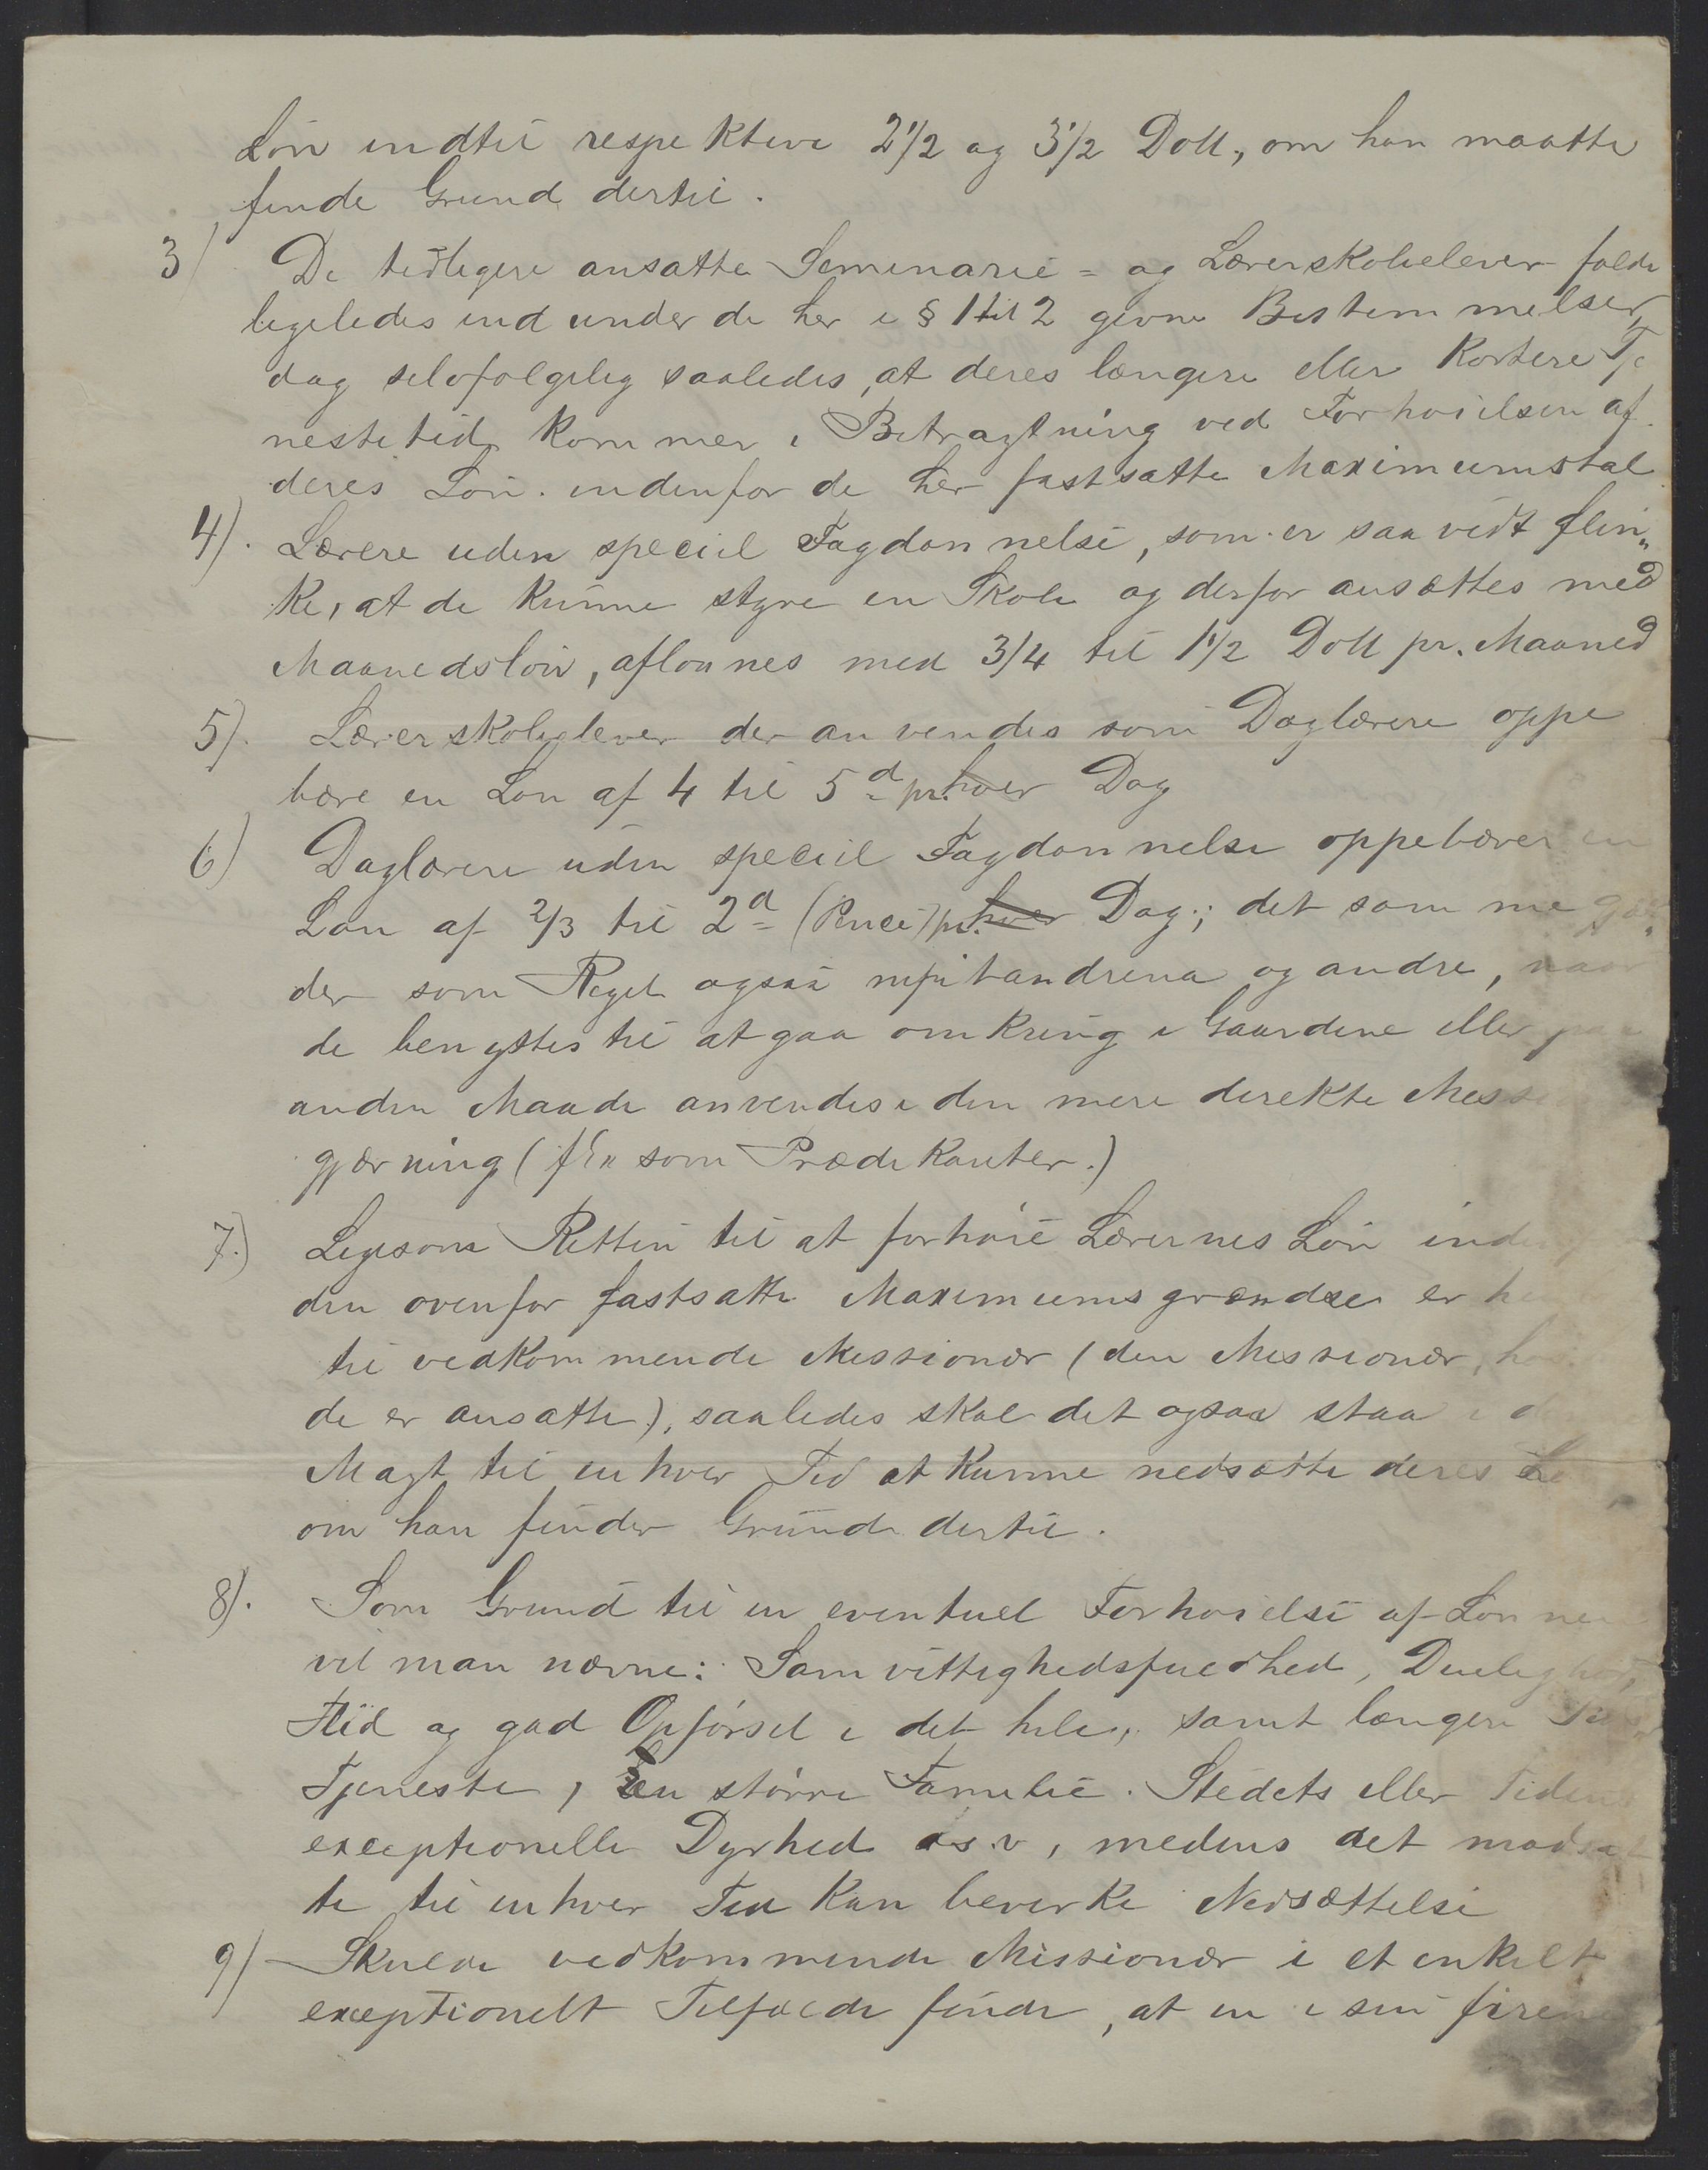 Lön indtil respektive 2 1/2 og 3 1/2 Doll., om han maatte
finde Grund dertil.
3/ De tidligere ansatte Seminarie= og Lærerskoleelever falde
ligeledes ind under de her i § 1 til 2 givne Bestemmelser,
dog selvfølgelig saaledes, at deres længere eller kortere Tje
nestetid kommer i Betragtning ved Forhöielsen af
deres Lön indenfor de her fastsatte Maximumstal
4). Lærere uden speciel Fagdannelse, som er saavidt flin„
ke, at de kunne styre en Skole og derfor ansættes med
Maanedslön, aflønnes med 3/4 til 1 1/2 Doll pr. Maaned
5). Lærerskoleelever der anvendes som Daglærere oppe
bære en Løn af 4 til 5 d pr. hver Dag
6) Daglærere uden speciel Fagdannelse oppebærer en
Løn af 2/3 til 2 d (Pence) pr. hver Dag; det samme gjæl„
der som Regel ogsaa mpitandrina og andre, naar
de benyttes til at gaa omkring i Gaardene eller paa
anden Maade anvendes i den mere direkte Missi
gjærning (f Ex som Prædikanter.)
7.) Ligesom Retten til at forhöie Lærernes Lön ind
den ovenfor fastsatte Maximumsgrændse er
til vedkommende Missionær (den Missionær,
de er ansatte), saaledes skal det ogsaa staa i
Magt til enhver Tid at kunne nedsætte deres
om han finder Grund dertil.
8). Som Grund til en eventuel Forhöielse af Lønnen
vil man nævne: Samvittighedsfuldhed, Duelighed,
Flid og god Opførsel i det hele, samt længere
Tjeneste, en större Familie. Stedets eller Tidens
exceptionelle Dyrhed o s. v, medens det modsat
te til enhver Tid kan bevirke Nedsættelse
9) Skulde vedkommende Missionær i et enkelt
exceptionelt Tilfælde finde, at en i sin